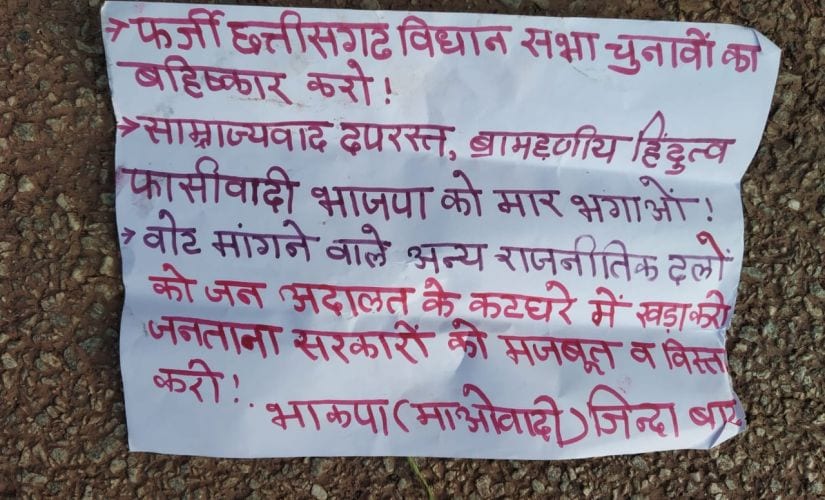 → फर्जी छत्तीसगढ विधान सभा चुनावों का
बहिष्कार करो!
→ साम्राज्यवाद दपरस्त, ब्रामहणीय हिंदुत्व
फासीवादी भाजपा को मार भगाओं!
→ वोट मांगने वाले अन्य राजनीतिक दलों
को जन अदालत के कटघरे में खड़ा करो
जनताना सरकारों को मजबूत व विस्त
करो!
भाकपा (माओवादी) जिन्दा बाद